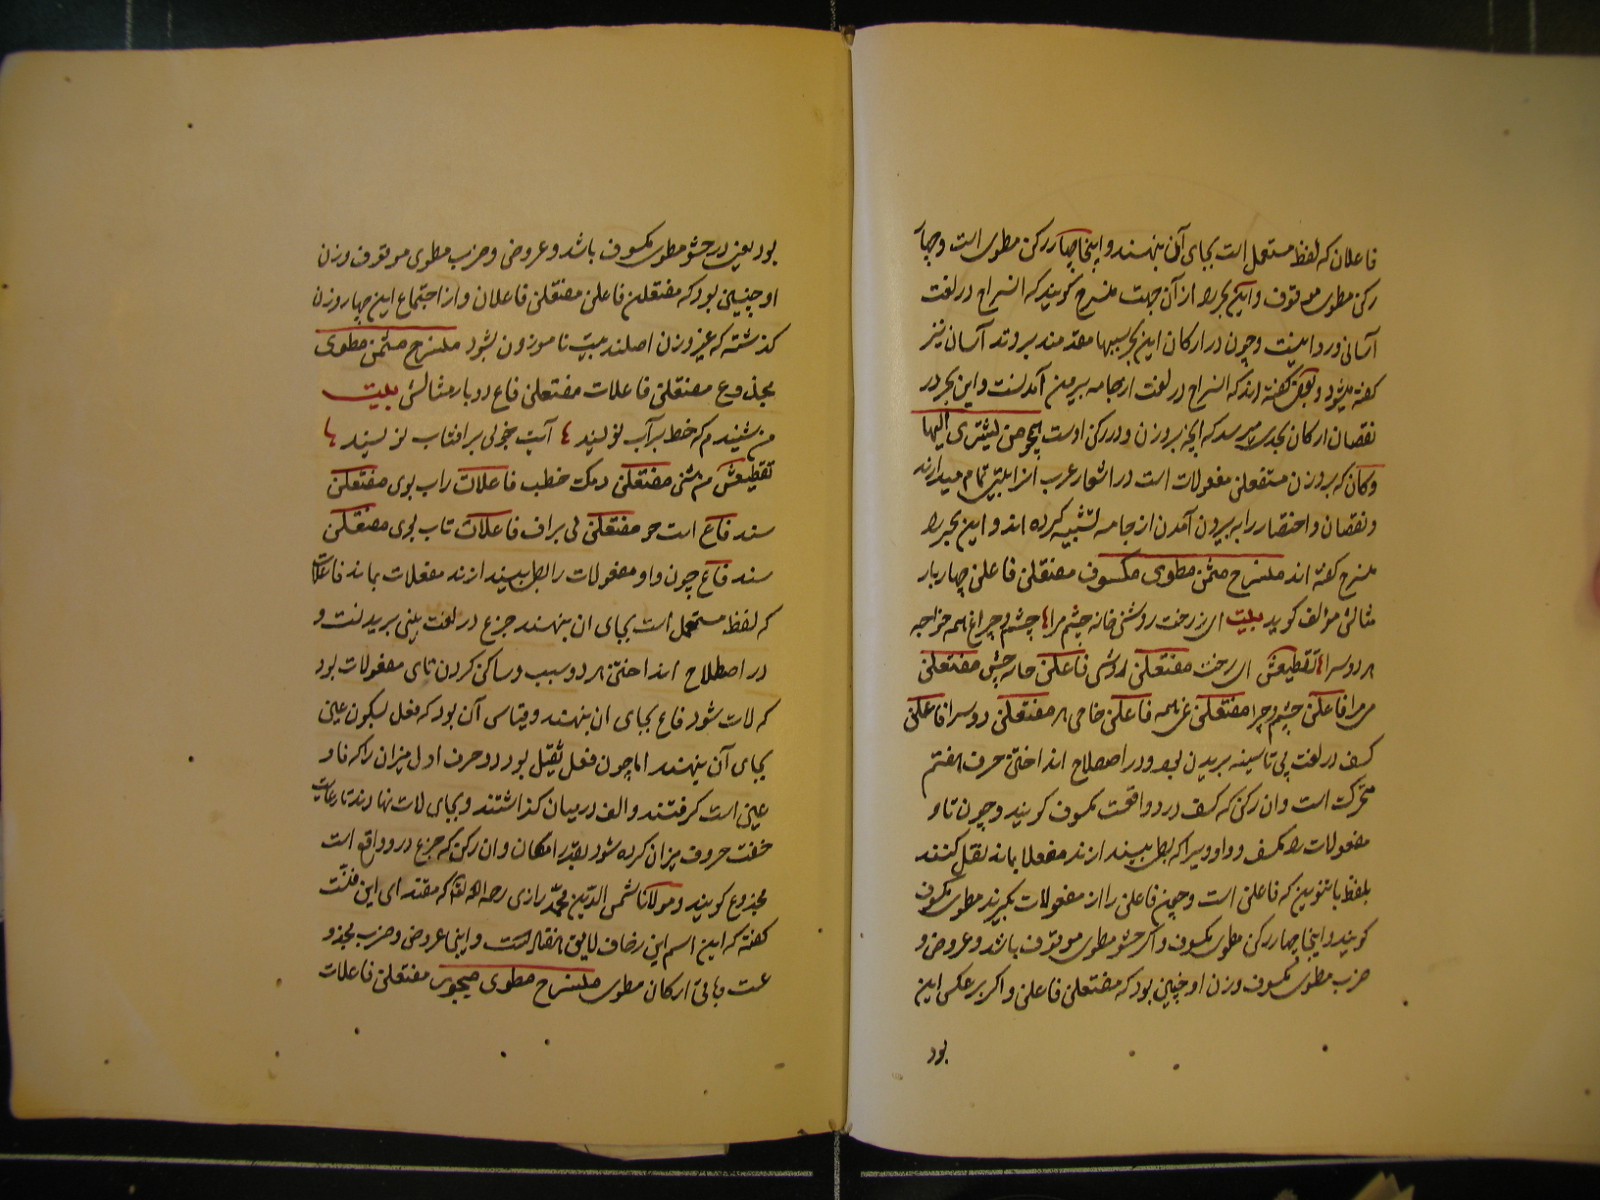 فاعلان که لفظ مستعمل است بجای آن بنهند و اینجا چهار رکن مطوی است و چهار
رکن مطوی موقوف و این بحر را از آن جهت منسرح گویند که انسراح در لغت
آسانی و روانیست و چون در ارکان این بحر سببها مقدمند بر وتد آسان نیز
گفته میشود و بعضی گفته اند که انسراح در لغت از جامه بیرون آمدنست و این بحر در
نقصان ارکان بحدی میرسد که آنچه بر وزن و در رکن اوست
و کان که بر وزن مستفعلن مفعولات است در اشعار عرب از تمام میدارند
و نقصان و اختصار را به بیرون آمدن از جامه تشبیه کرده اند و این بحر را
منسرح گفته اند منسرح مثمن مطوی مکسوف مفتعلن فاعلن چهار بار
مثالش مؤلف گوید بیت ای ز رخت روشنی خانه چشم مرا چشم و چراغ همه خواجه
هر دو سرا تقطیعش ای ز رخت مفتعلن روشنی فاعلن خانه چش مفتعلن
م مرا فاعلن چشم و چرا مفتعلن غ همه فاعلن خاجه هر مفتعلن دو سرا فاعلن
کسف در لغت پی تا سینه بریدن بود و در اصطلاح انداختن حرف هفتم
متحرک است و آن رکن که کسف درو واقعست مکسوف گویند و چون تا و
مفعولات را بکسف و واو ویرا که بطی بیندازند مفعلا بماند نقل کنند
بلفظ با تنوین که فاعلن است و چون فاعلن را از مفعولات بگیرند مطوی مکسوف
گویند و اینجا چهار رکن مطوی مکسوف و اگر حشو مطوی موقوف باشد و عروض و
ضرب مطوی مکسوف وزن او چنین بود که مفتعلن فاعلن و اگر بر عکس این
بود
بود یعنی در حشو مطوی مکسوف باشد و عروض و ضرب مطوی موقوف وزن
او چنین بود که مفتعلن فاعلن مفتعلن فاعلان و از اجتماع این چهار وزن
گذشته که غیر وزن اصلند بیت ناموزون نشود منسرح مثمن مطوی
مجذوع مفتعلن فاعلات مفتعلن فاع دو بار مثالش بیت
من نشنیدم که خط بر آب نویسند آیت خوبی بر آفتاب نویسند
تقطیعش من نشنی مفتعلن دم که خطب فاعلات راب نوی مفتعلن
سند فاع است خو مفتعلن بی براف فاعلات تاب نوی مفتعلن
سند فاع چون واو مفعولات را بطی بیندازند مفعلات بماند فاعلات
که لفظ مستعمل است بجای آن بنهند جدع در لغت بینی بریدنست و
در اصطلاح انداختن هر دو سبب و ساکن کردن تای مفعولات بود
که لات شود فاع بجای آن بنهند و قیاس آن بود که فعل بسکون عین
بجای آن بنهند اما چون فعل ثقیل بود دو حرف اول میزان را که فا و
عین است گرفتند و الف در میان گذاشتند و بجای لات نهادند تا رعایت
خفت حروف میزان کرده شود بقدر امکان و آن رکن که جدع درو واقع است
مجذوع گویند و مولانا شمس الدین محمد رازی رحمه الله که مقتدای این فنست
گفته که این اسم این زحاف لایق است و اینجا عروض و ضرب مجذو
عست و باقی ارکان مطوی منسرح مطوی مفتعلن فاعلات